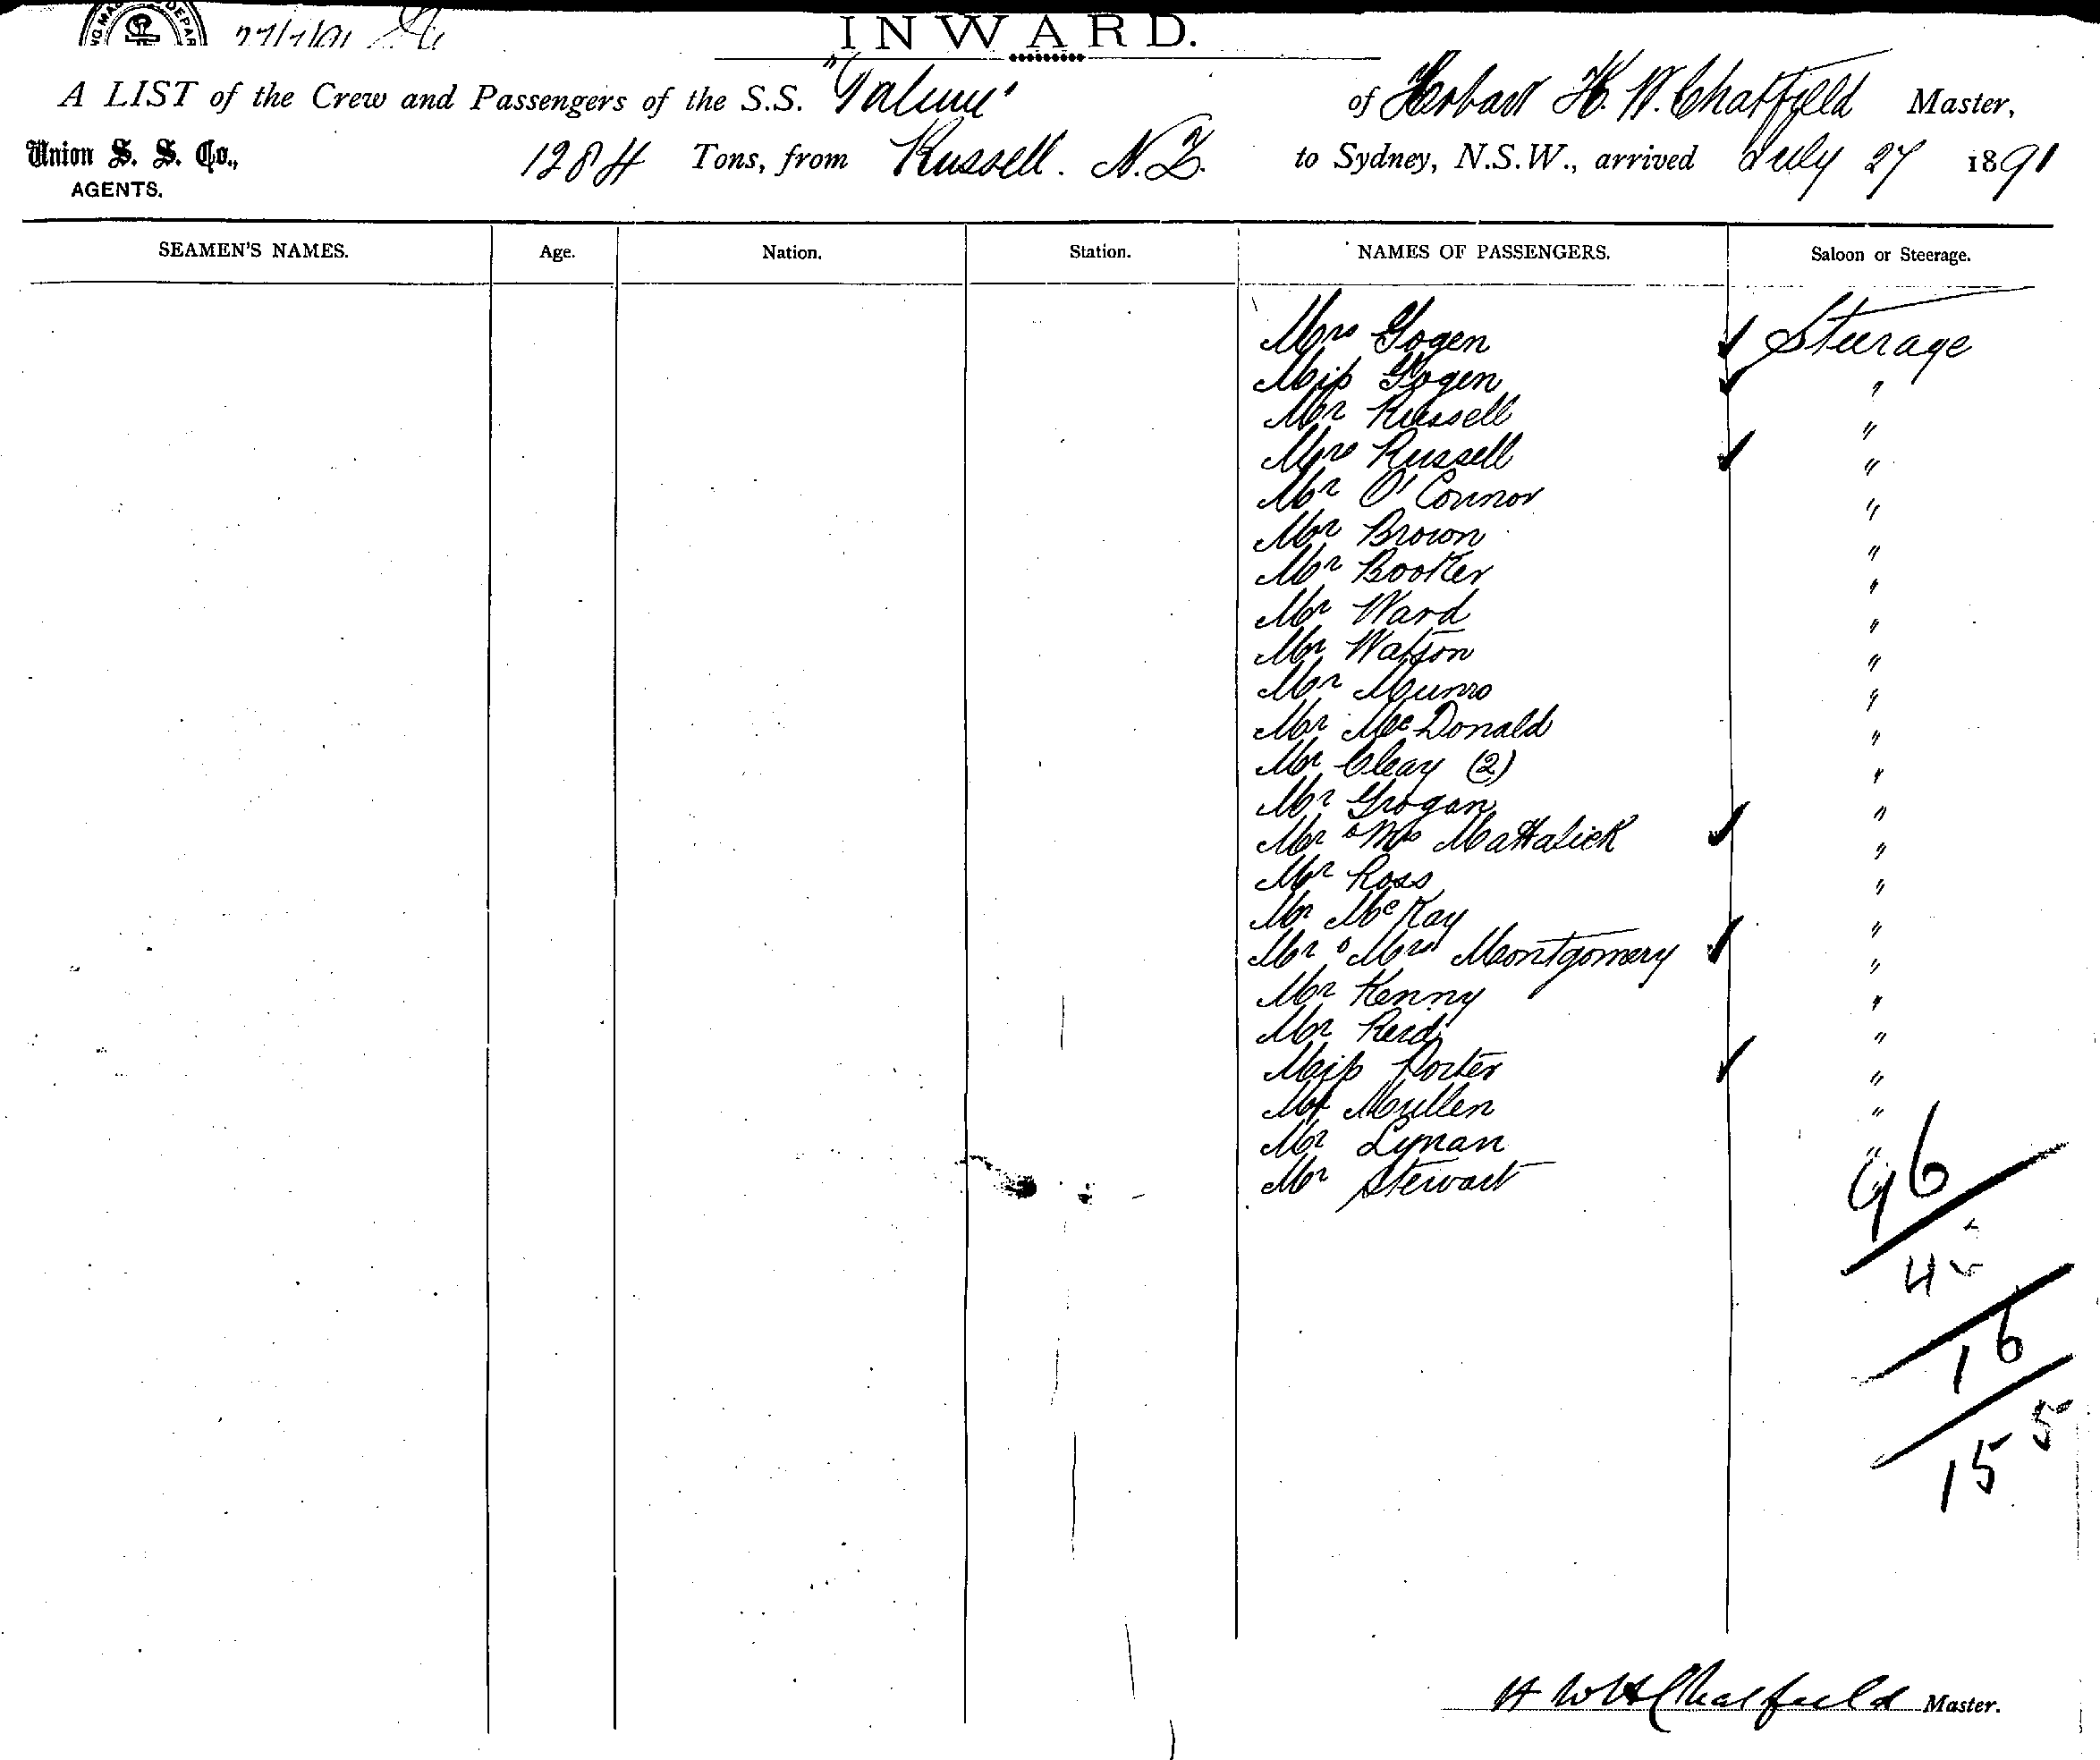 27/7/91
INWARD.
A LIST of the Crew and Passengers of the S.S. "Talune" of Herbart H. W. Chatfield Master,
Union S. S. Co., 1284 Tons, from Russell. N.Z. to Sydney, N.S.W., arrived July 27 1891
AGENTS.
SEAMEN'S NAMES. Age. Nation. Station. NAMES OF PASSENGERS. Saloon or Steerage.
Mrs Gogen ✓ Steerage
Miss Gogen ✓ "
Mr Russell "
Mrs Russell ✓ "
Mr O'Connor "
Mr Brown "
Mr Booker "
Mr Ward "
Mr Watson "
Mr Munro "
Mr McDonald "
Mr Cleay (2) "
Mr Grogan "
Mr & Mrs Mattalick ✓ "
Mr Ross "
Mr McKay "
Mr & Mrs Montgomery ✓ "
Mr Kenny "
Mr Reid "
Miss Porter ✓ "
Mr Mullen "
Mr Lyman "
Mr Stewart "
96
4
16
15 5
H W H Chatfield Master.